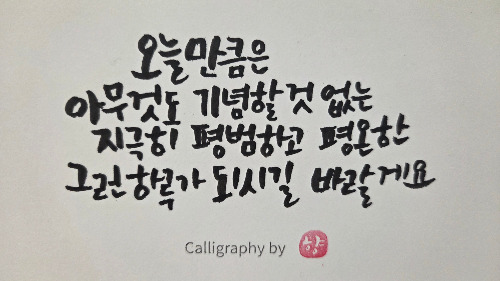 오늘만큼은
아무것도 기념할 것 없는
지극히 평범하고 평온한
그런 하루가 되시길 바랄게요
Calligraphy by 향